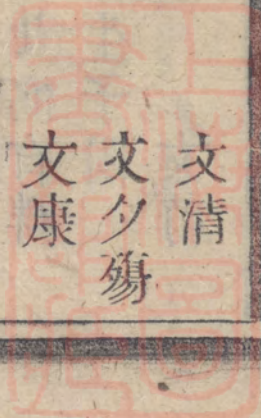 文清
文夕殤
文康